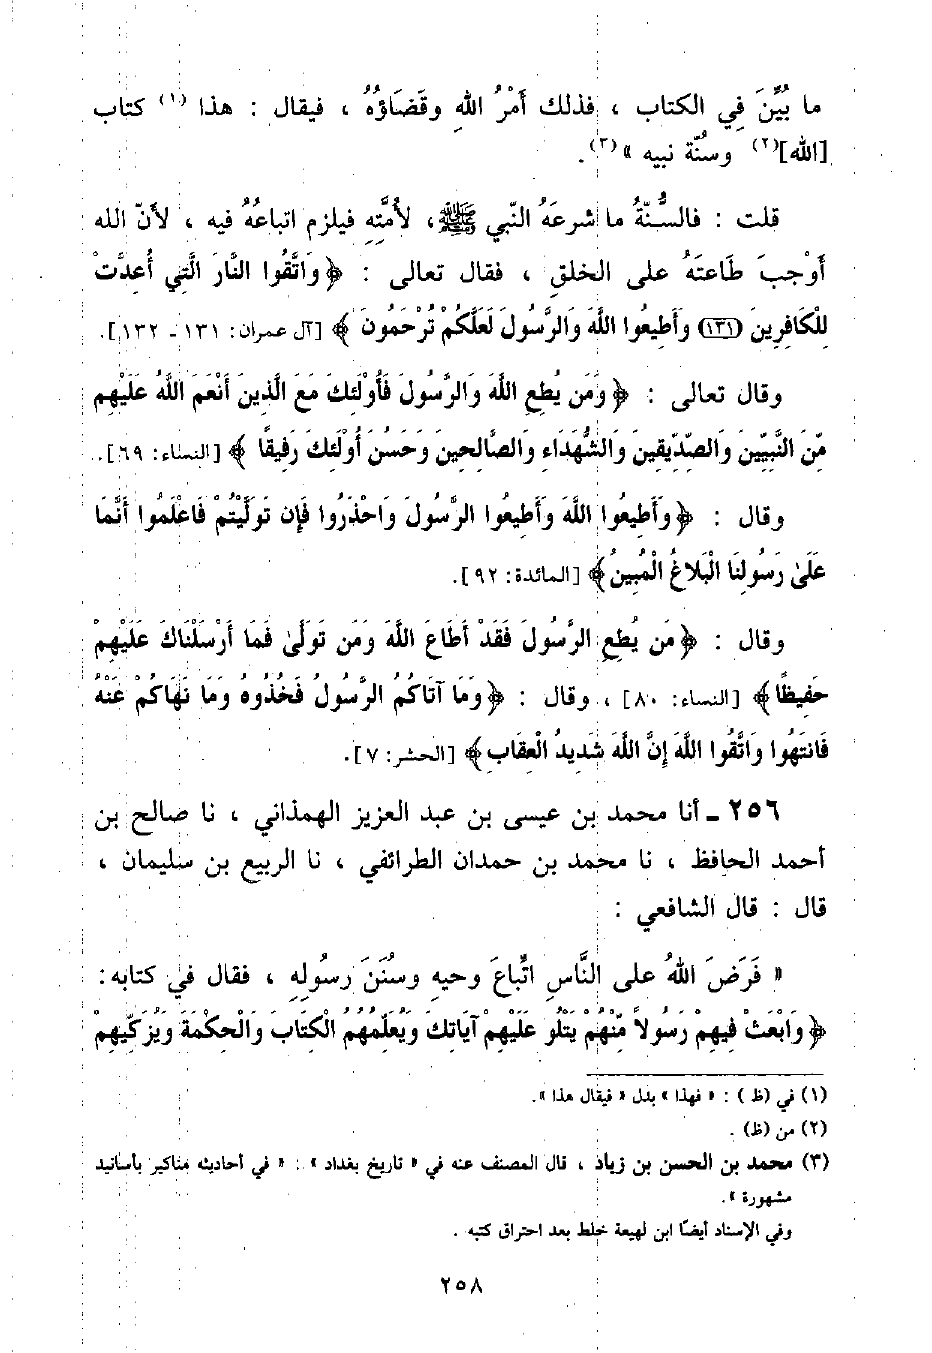 ما بُيِّنَ فِي الكتاب ، فذلك أَمْرُ اللهِ وقَضَاؤُهُ ، فيقال : هذا (١) كتاب
[الله](٢) وسُنّة نبيه » (٣).
قلت : فالسُّنّةُ ما شرعَهُ النّبي ﷺ، لأُمَّتِهِ فيلزم اتباعُهُ فيه ، لأَنّ الله
أَوْجبَ طَاعتَهُ على الخلقِ ، فقال تعالى : ﴿ وَاتَّقُوا النَّارَ الَّتِي أُعِدَّتْ
لِلْكَافِرِينَ (١٣١) وَأَطِيعُوا اللَّهَ وَالرَّسُولَ لَعَلَّكُمْ تُرْحَمُونَ ﴾ [آل عمران: ١٣١ ـ ١٣٢].
وقال تعالى : ﴿ وَمَن يُطِعِ اللَّهَ وَالرَّسُولَ فَأُوْلَئِكَ مَعَ الَّذِينَ أَنْعَمَ اللَّهُ عَلَيْهِم
مِّنَ النَّبِيِّينَ وَالصِّدِّيقِينَ وَالشُّهَدَاءِ وَالصَّالِحِينَ وَحَسُنَ أُوْلَئِكَ رَفِيقًا ﴾ [النساء: ٦٩].
وقال : ﴿ وَأَطِيعُوا اللَّهَ وَأَطِيعُوا الرَّسُولَ وَاحْذَرُوا فَإِن تَوَلَّيْتُمْ فَاعْلَمُوا أَنَّمَا
عَلَىٰ رَسُولِنَا الْبَلاغُ الْمُبِينُ ﴾ [المائدة: ٩٢].
وقال : ﴿ مَن يُطِعِ الرَّسُولَ فَقَدْ أَطَاعَ اللَّهَ وَمَن تَوَلَّىٰ فَمَا أَرْسَلْنَاكَ عَلَيْهِمْ
حَفِيظًا ﴾ [النساء: ٨٠] ، وقال : ﴿ وَمَا آتَاكُمُ الرَّسُولُ فَخُذُوهُ وَمَا نَهَاكُمْ عَنْهُ
فَانتَهُوا وَاتَّقُوا اللَّهَ إِنَّ اللَّهَ شَدِيدُ الْعِقَابِ ﴾ [الحشر: ٧].
٢٥٦ ـ أنا محمد بن عيسى بن عبد العزيز الهمذاني ، نا صالح بن
أحمد الحافظ ، نا محمد بن حمدان الطرائفي ، نا الربيع بن سليمان ،
قال : قال الشافعي :
« فَرَضَ اللهُ على النَّاسِ اتِّباعَ وحيهِ وسُنَنَ رسُولِهِ ، فقال في كتابه:
﴿ وَابْعَثْ فِيهِمْ رَسُولاً مِّنْهُمْ يَتْلُو عَلَيْهِمْ آيَاتِكَ وَيُعَلِّمُهُمُ الْكِتَابَ وَالْحِكْمَةَ وَيُزَكِّيهِمْ
(١) في (ظ) : « فهذا » بدل « فيقال هذا ».
(٢) من (ظ) .
(٣) محمد بن الحسن بن زياد ، قال المصنف عنه في « تاريخ بغداد » : « في أحاديثه مناكير بأسانيد
مشهورة ».
وفي الإسناد أيضًا ابن لهيعة خلط بعد احتراق كتبه .
٢٥٨